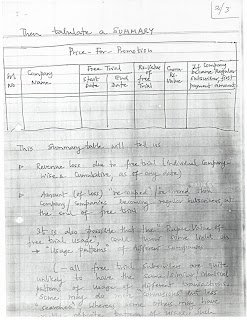 2/3
Then tabulate a SUMMARY
Price-For-Promotion
Srl No
Company Name
Free Trial
Start Date
End Date
Re. Value of free Trial
Gross Re. Value
If Company became Regular Subscriber first payment amount
This Summary table will tell us
Revenue loss due to free trial (Individual Company-
wise & Cumulative as of any date)
Amount (of loss) "re-couped" for
Company/Companies becoming regular subscribers at
the end of free trial
It is also possible that the "Rupee Value of
free trial usage" could throw some light on
"Usage patterns" of different companies
(- all free trial subscribers are quite
unlikely to have the
pattern of usage of different transactions
Some may do more
"searches" whereas some others may have